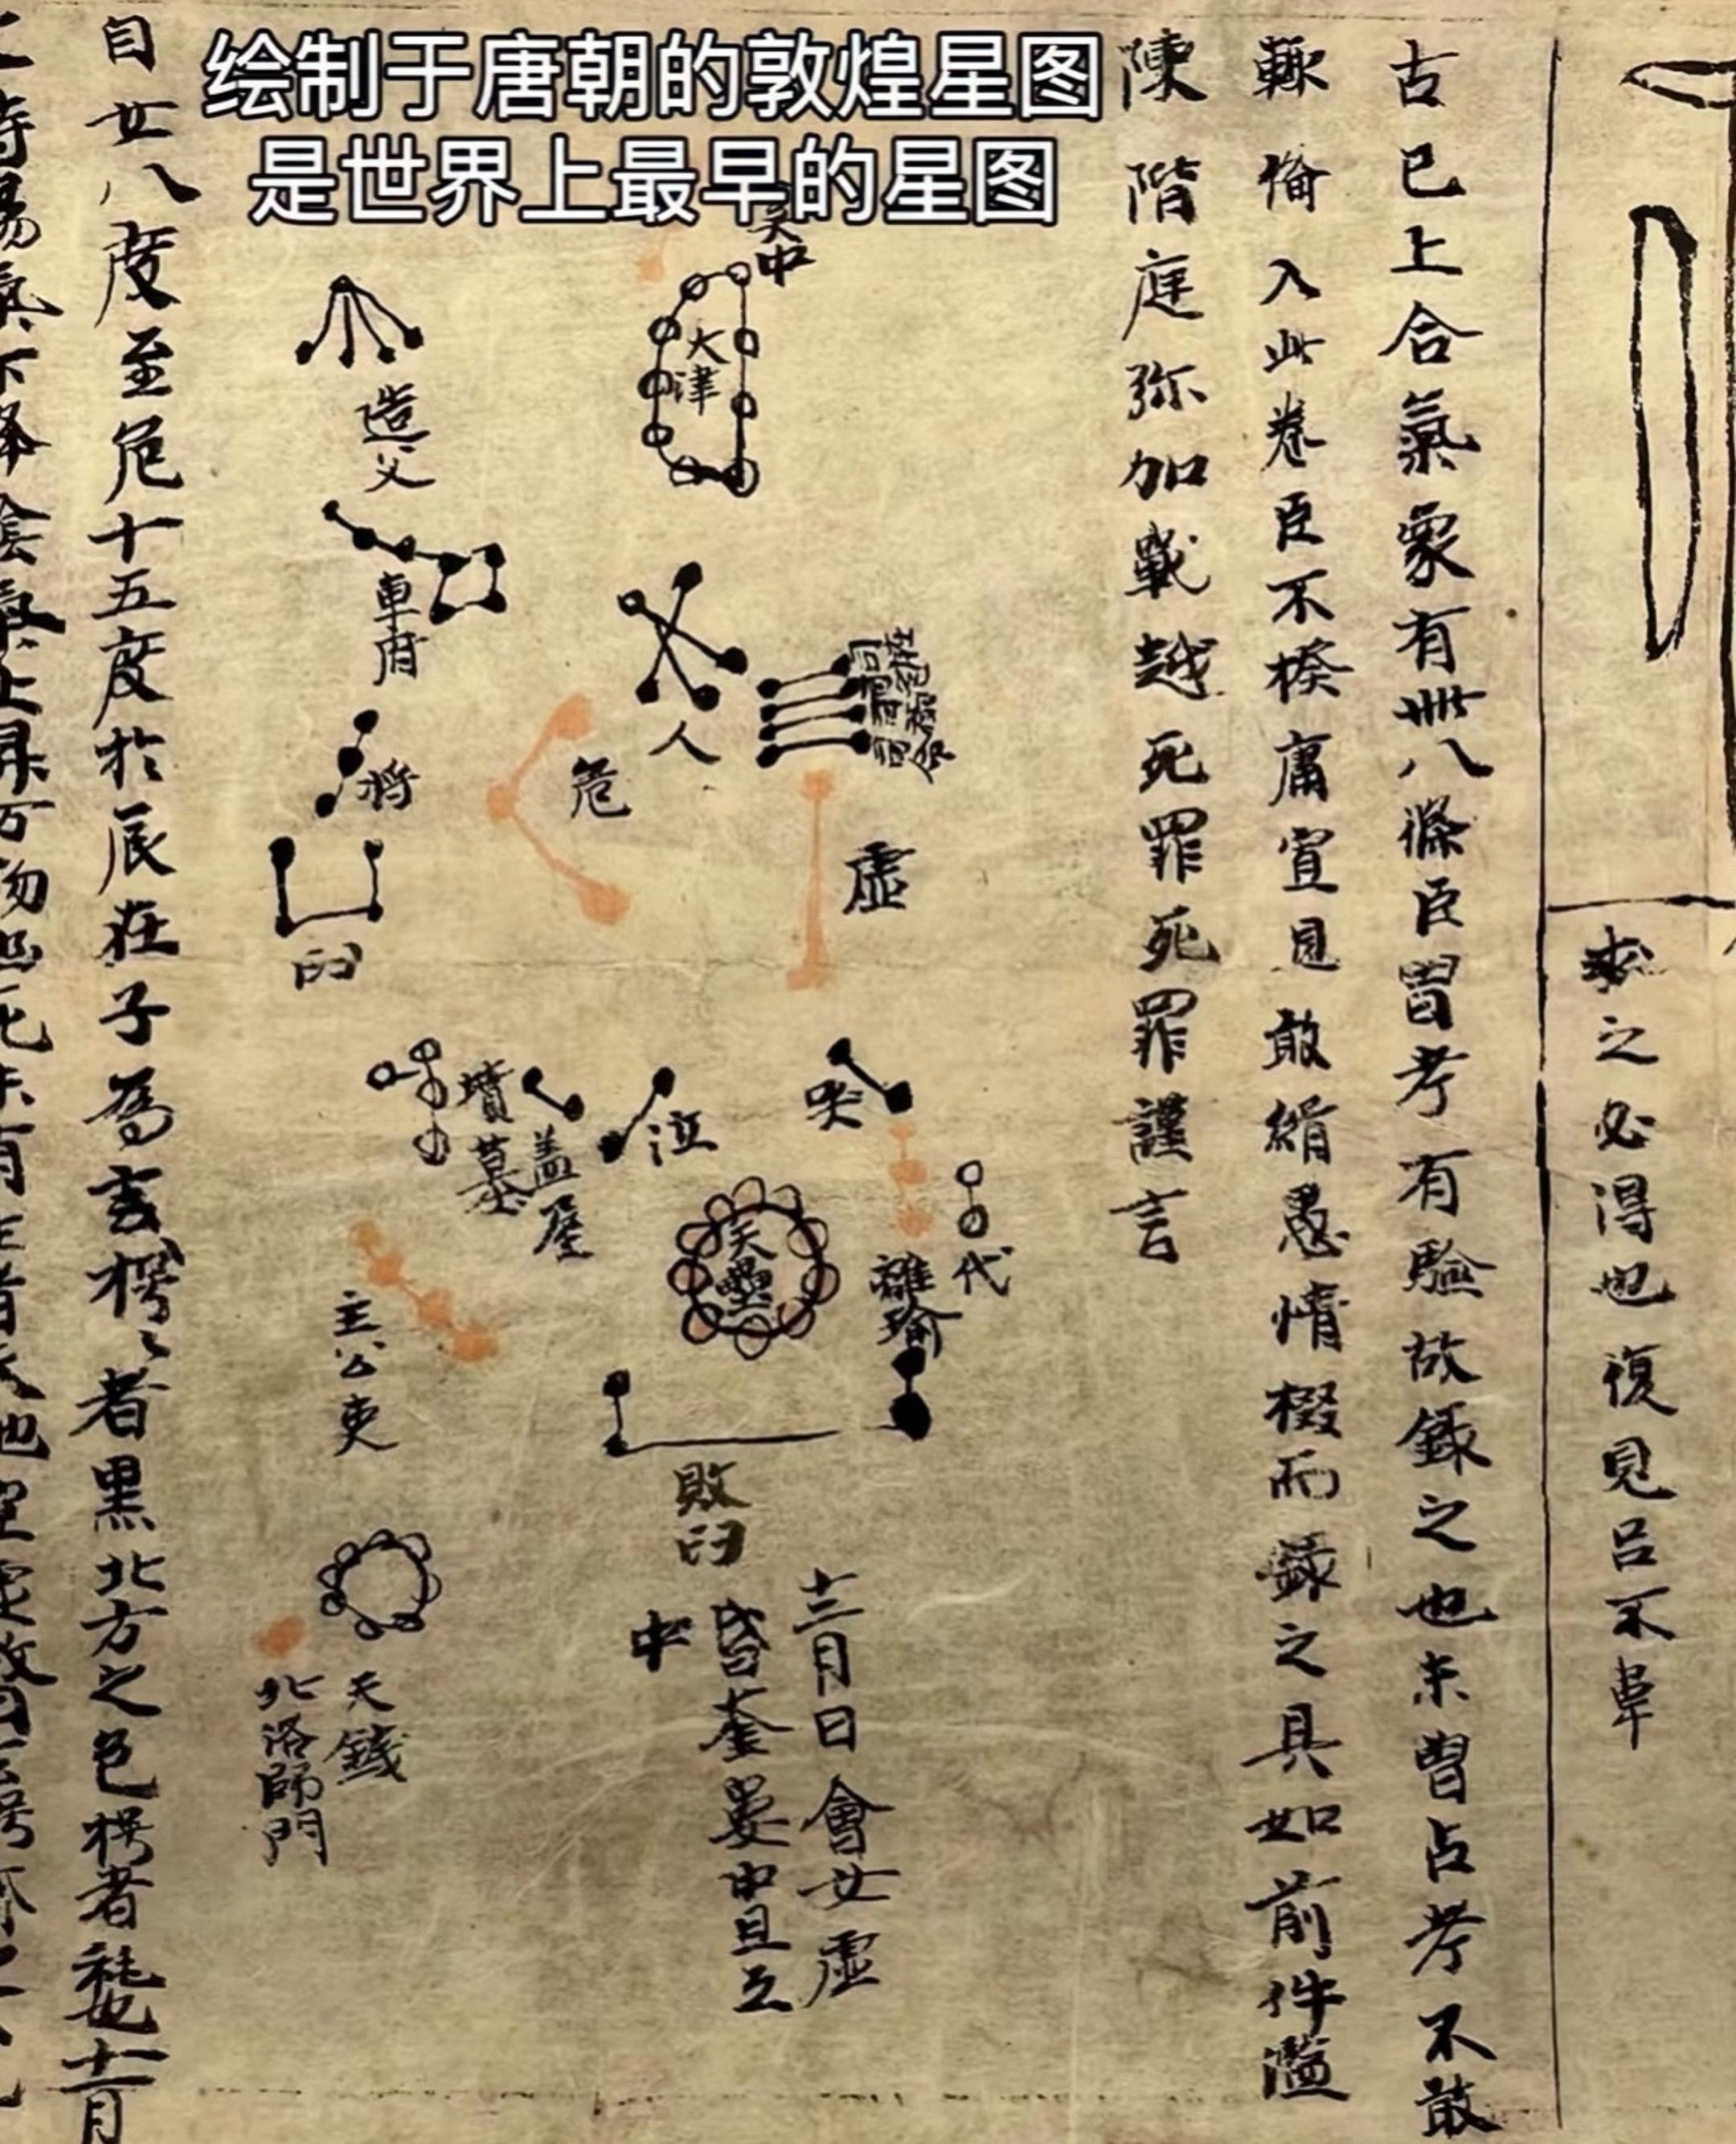 绘制于唐朝的敦煌星图
是世界上最早的星图
之必得也復見呂不韋
古已上合氣象有卌八條臣曽考有驗故録之也未曽占考不敢
輙備入此卷臣不揆庸冥見敢緝愚情掇而録之具如前件濫
陳階庭弥加戰越死罪死罪謹言
天中
大津
造父
車府
人
司危
司非
司禄
司命
危
虛
将
臼
墳墓
盖屋
泣
哭
天壘
離瑜
代
主公吏
敗臼
天錢
北洛師門
十二月日會女虛
昏奎婁中旦互
中
自女八度至危十五度於辰在子為玄枵枵者黑北方之色枵者耗也十一月